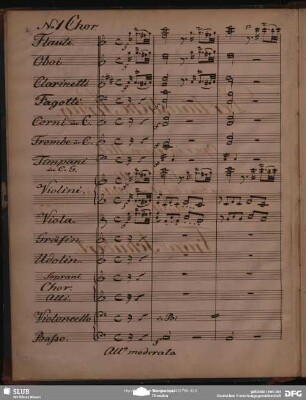 No. 1 Chor
Flauti
Oboi
Clarinetti
Fagotti
Corni in C.
Trombe in C.
Timpani
in C. G.
Violini
Viola
Gräfin
Udolin
Soprani
Chor.
Alti.
Violoncello
Basso.
All° moderato
SLUB
Wir führen Wissen.
DFG